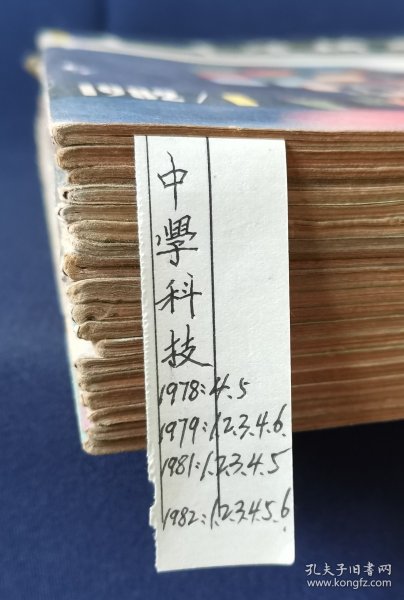 1982/1
中學科技
1978:4、5
1979:1、2、3、4、6、
1981:1、2、3、4、5
1982:1、2、3、4、5、6、
孔夫子旧书网
www.kongfz.com